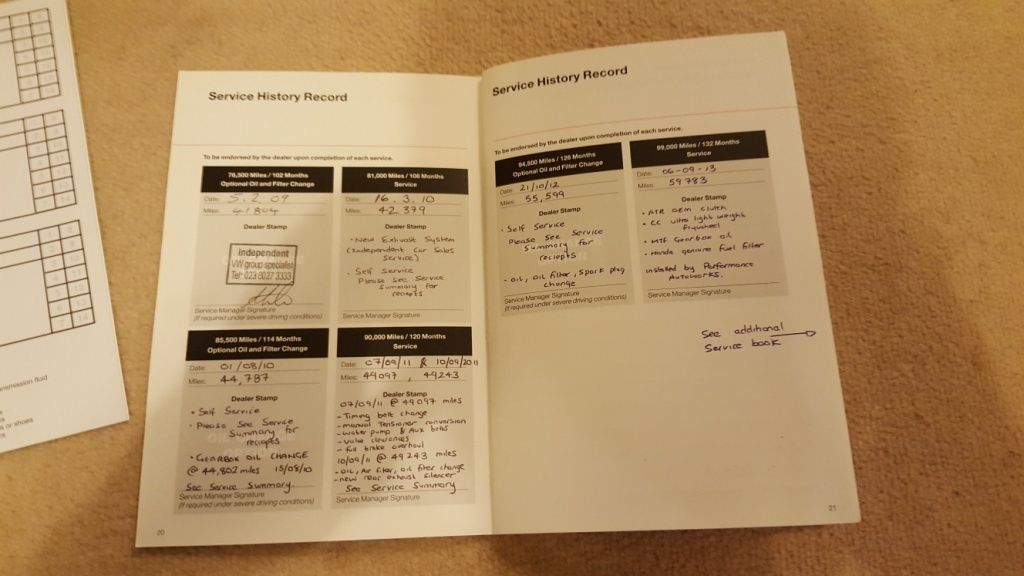 Service History Record
To be endorsed by the dealer upon completion of each service.
76,500 Miles / 102 Months
Optional Oil and Filter Change
Date: 5.2.09
Miles:
Dealer Stamp
independent
VW group specialist
Tel: 023 8027 3333
Service Manager Signature
(If required under severe driving conditions)
81,000 Miles / 108 Months
Service
Date: 16.3.10
Miles: 42 379
Dealer Stamp
• New Exhaust System
(Independent Car Sales
Service)
• Self Service
Please See Service
Summary for
reciepts
Service Manager Signature
85,500 Miles / 114 Months
Optional Oil and Filter Change
Date: 01/08/10
Miles: 44,787
Dealer Stamp
• Self Service
• Please See Service
Summary for
reciepts
• GEARBOX OIL CHANGE
@ 44,802 miles 15/08/10
See Service Summary.
Service Manager Signature
(If required under severe driving conditions)
90,000 Miles / 120 Months
Service
Date: 07/09/11 & 10/09/2011
Miles: 49097, 49243
Dealer Stamp
07/09/11 @ 49097 miles
- Timing belt change
- manual Tensioner conversion
- water pump & Aux belts
- Valve clearances
- full brake overhaul
10/09/11 @ 49243 miles
- Oil, Air filter, oil filter change
- new rear exhaust silencer
See Service Summary
Service Manager Signature
20
Service History Record
To be endorsed by the dealer upon completion of each service.
94,500 Miles / 126 Months
Optional Oil and Filter Change
Date: 21/10/12
Miles: 55,599
Dealer Stamp
• Self Service
Please See Service
Summary for
reciepts
• Oil, oil filter, Spark plug
change
Service Manager Signature
(If required under severe driving conditions)
99,000 Miles / 132 Months
Service
Date: 06-09-13
Miles: 59783
Dealer Stamp
• ATR OEM Clutch
• CC ultra light weight
flywheel
• MTF Gearbox oil
• Honda genuine fuel filter
Installed by Performance
Autoworks.
Service Manager Signature
See additional
Service book
21
transmission fluid
or shoes